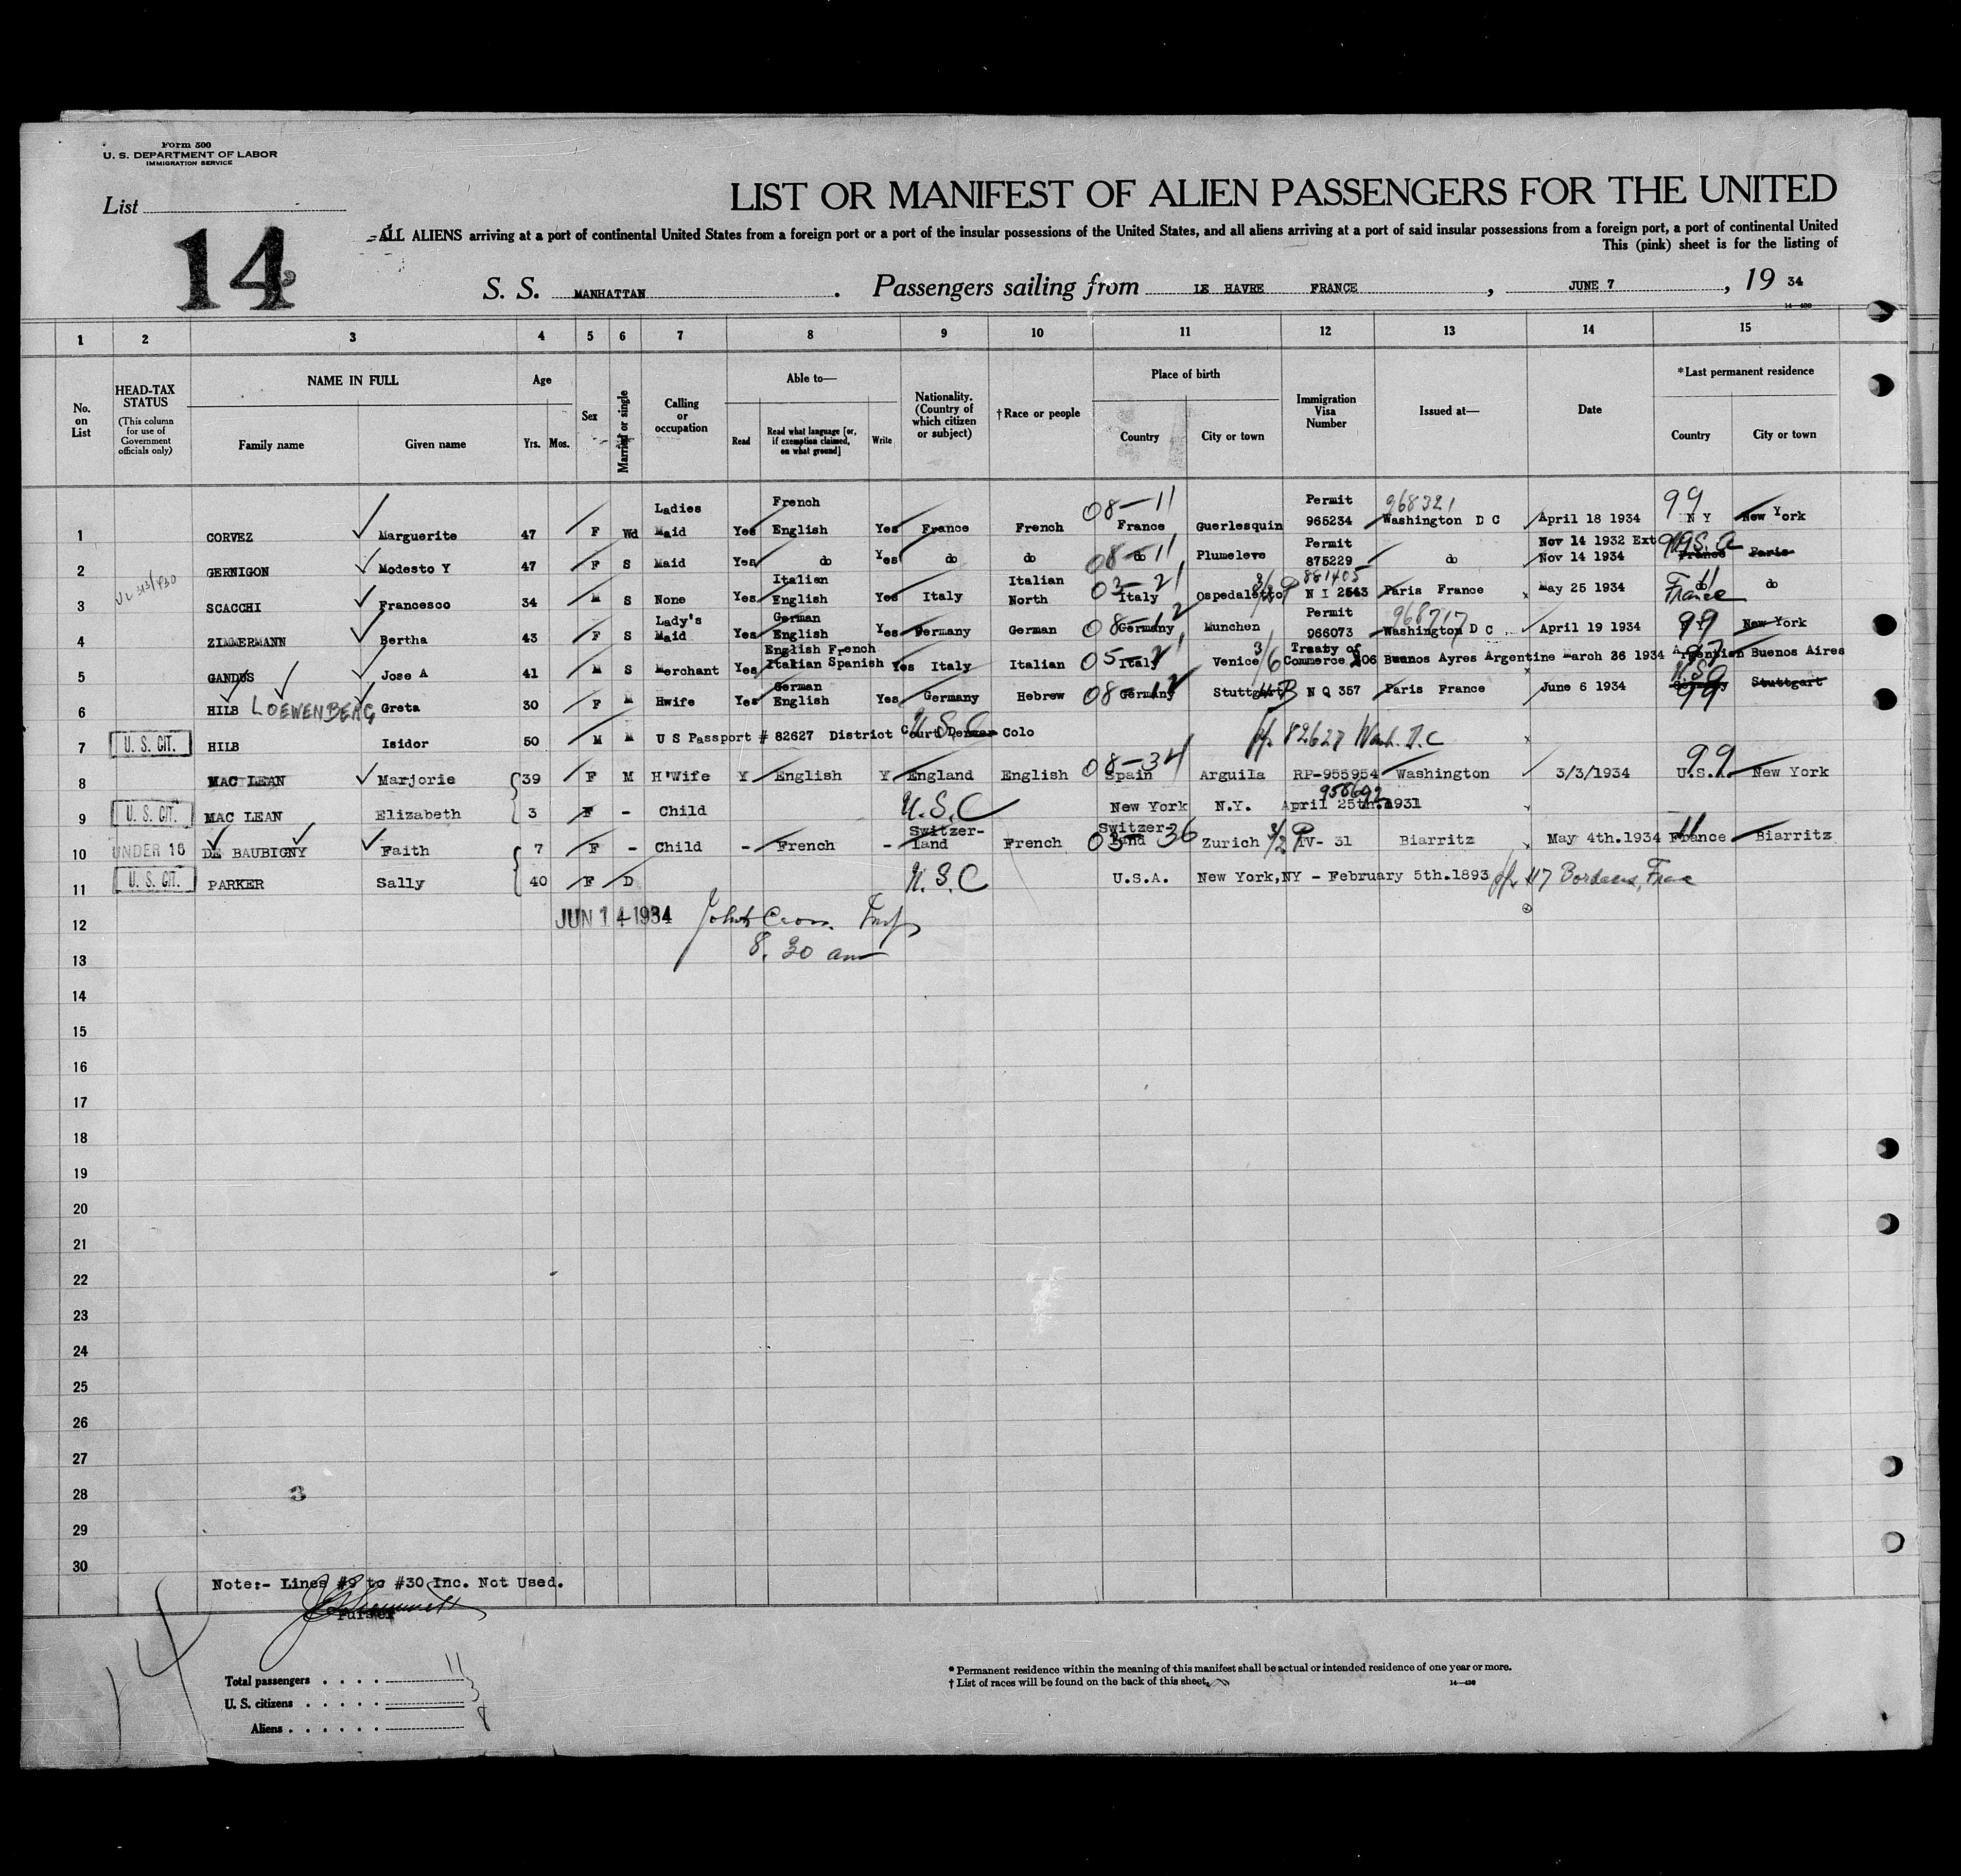 Form 500
U. S. DEPARTMENT OF LABOR
IMMIGRATION SERVICE
List
14
LIST OR MANIFEST OF ALIEN PASSENGERS FOR THE UNITED
ALL ALIENS arriving at a port of continental United States from a foreign port or a port of the insular possessions of the United States, and all aliens arriving at a port of said insular possessions from a foreign port, a port of continental United
This (pink) sheet is for the listing of
S. S. MANHATTAN . Passengers sailing from LE HAVRE FRANCE , JUNE 7 , 19 34
14—430
1 2 3 4 5 6 7 8 9 10 11 12 13 14 15
No. on List
HEAD-TAX STATUS
(This column for use of Government officials only)
NAME IN FULL
Family name Given name
Age
Yrs. Mos.
Sex
Married or single
Calling or occupation
Able to—
Read
Read what language [or, if exemption claimed, on what ground]
Write
Nationality. (Country of which citizen or subject)
†Race or people
Place of birth
Country City or town
Immigration Visa Number
Issued at—
Date
*Last permanent residence
Country City or town
Ladies French 08-11 Permit 968321 99
1 CORVEZ Marguerite 47 F Wd Maid Yes English Yes France French France Guerlesquin 965234 Washington D C April 18 1934 N Y New York
Permit Nov 14 1932 Ext U.S.A
2 GERNIGON Modesto Y 47 F S Maid Yes do Yes do do 08-11 do Plumeleve 875229 do Nov 14 1934 France Paris
Italian Italian 03-21 881405
3 SCACCHI Francesco 34 M S None Yes English Yes Italy North Italy Ospedaletto 3/2 P N I 2543 Paris France May 25 1934 do 11 France do
Lady's German Permit 968717
4 ZIMMERMANN Bertha 43 F S Maid Yes English Yes Germany German 08-12 Germany Munchen 966073 Washington D C April 19 1934 N Y 99 New York
English French Treaty of
5 GANDUS Jose A 41 M S Merchant Yes Italian Spanish Yes Italy Italian 05-21 Italy Venice 3/6 Commerce 206 Buenos Ayres Argentine March 26 1934 Argentien 97 Buenos Aires
German U.S.A
6 HILB LOEWENBERG Greta 30 F M Hwife Yes English Yes Germany Hebrew 08-12 Germany Stuttgart 4B N Q 357 Paris France June 6 1934 Germany 99 Stuttgart
7 U. S. CIT. HILB Isidor 50 M M U S Passport # 82627 District Court Denver Colo U.S.C 82627 Wash. D.C
8 MAC LEAN Marjorie 39 F M H'Wife Y English Y England English 08-34 Spain Arguila RP-955954 Washington 3/3/1934 U.S.A. 99 New York
958692
9 U. S. CIT. MAC LEAN Elizabeth 3 F - Child U.S.C New York N.Y. April 25th.1931
Switzer- Switzer-
10 UNDER 16 DE BAUBIGNY Faith 7 F - Child - French - land French 03-36 land Zurich 3/2 P IV- 31 Biarritz May 4th.1934 France 11 Biarritz
11 U. S. CIT. PARKER Sally 40 F D U.S.C U.S.A. New York,NY - February 5th.1893 117 Bordeaux, France
12 JUN 14 1934
13 8.30 am
14
15
16
17
18
19
20
21
22
23
24
25
26
27
28
3
29
30
Note:- Lines #9 to #30 Inc. Not Used.
Purser
14
Total passengers 11
U. S. citizens 3
Aliens 8
* Permanent residence within the meaning of this manifest shall be actual or intended residence of one year or more.
† List of races will be found on the back of this sheet.
14—430